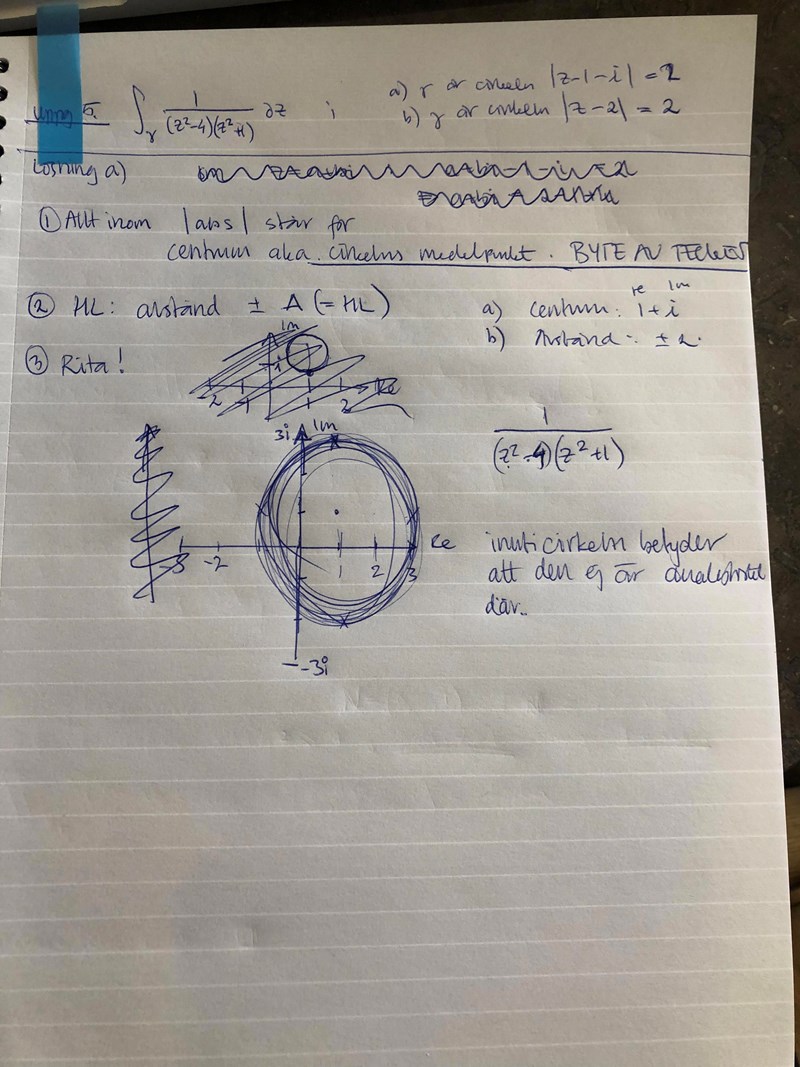 5. ∫γ 1/((z²-4)(z²+1)) ∂z i
a) γ är cirkeln |z-1-i| = 2
b) γ är cirkeln |z-2| = 2
Lösning a)
① Allt inom |abs| står för
centrum aka. cirkelns medelpunkt. BYTE AV TECKEN
② HL: avstånd ± A (= HL)
re Im
a) Centrum: 1+i
b) Avstånd: ± 2.
③ Rita!
Im
i
-2 -1 1 2 Re
1/((z²-4)(z²+1))
3i Im
-3 -2 1 2 3 Re
-3i
inuti cirkeln betyder
att den ej är
där..